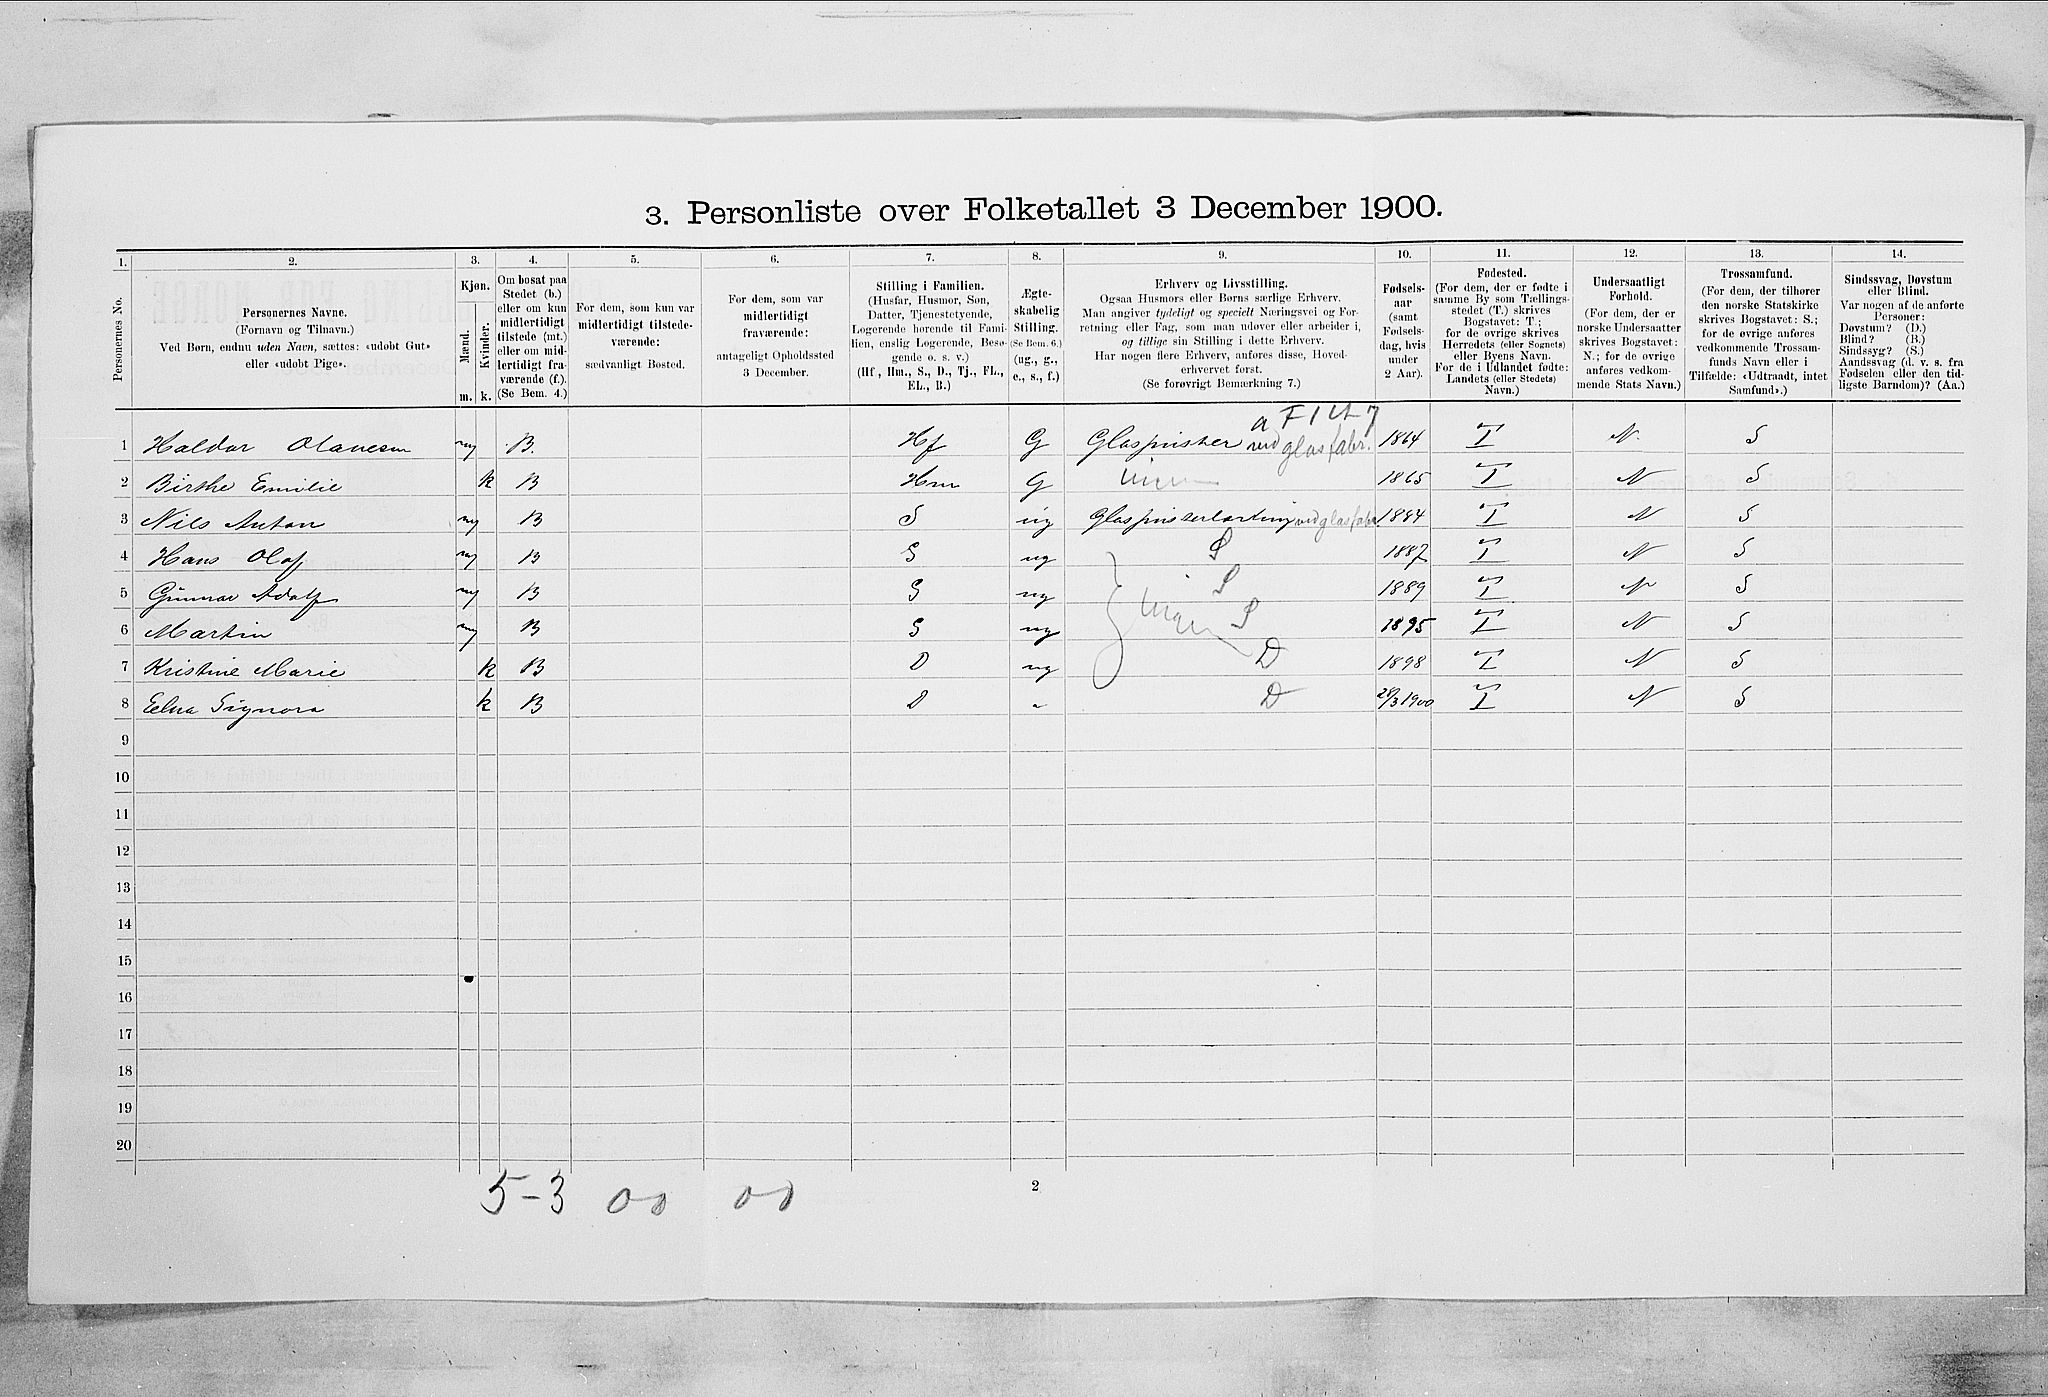 3. Personliste over Folketallet 3 December 1900.
1. 2. 3. 4. 5. 6. 7. 8. 9. 10. 11. 12. 13. 14.
Personernes No.
Personernes Navne.
(Fornavn og Tilnavn.)
Ved Børn, endnu uden Navn, sættes: «udøbt Gut»
eller «udøbt Pige».
Kjøn.
Mænd.
Kvinder.
m. k.
Om bosat paa
Stedet (b.)
eller om kun
midlertidigt
tilstede (mt.)
eller om mid-
lertidigt fra-
værende (f.).
(Se Bem. 4.)
For dem, som kun var
midlertidigt tilstede-
værende:
sædvanligt Bosted.
For dem, som var
midlertidigt
fraværende:
antageligt Opholdssted
3 December.
Stilling i Familien.
(Husfar, Husmor, Søn,
Datter, Tjenestetyende,
Logerende hørende til Fami-
lien, enslig Logerende, Besø-
gende o. s. v.)
(Hf., Hm., S., D., Tj., FL.,
EL., B.)
Ægte-
skabelig
Stilling.
(Se Bem. 6.)
(ug., g.,
e., s., f.)
Erhverv og Livsstilling.
Ogsaa Husmors eller Børns særlige Erhverv.
Man angiver tydeligt og specielt Næringsvei og For-
retning eller Fag, som man udøver eller arbeider i,
og tillige sin Stilling i dette Erhverv.
Har nogen flere Erhverv, anføres disse, Hoved-
erhvervet først.
(Se forøvrigt Bemærkning 7.)
Fødsels-
aar
(samt
Fødsels-
dag, hvis
under
2 Aar).
Fødested.
(For dem, der er fødte i
samme By som Tællings-
stedet (T.) skrives
Bogstavet: T.;
for de øvrige skrives
Herredets (eller Sognets)
eller Byens Navn.
For de i Udlandet fødte:
Landets (eller Stedets)
Navn.)
Undersaatligt
Forhold.
(For dem, der er
norske Undersaatter
skrives Bogstavet:
N.; for de øvrige
anføres vedkom-
mende Stats Navn.)
Trossamfund.
(For dem, der tilhører
den norske Statskirke
skrives Bogstavet: S.;
for de øvrige anføres
vedkommende Trossam-
funds Navn eller i
Tilfælde: «Udtraadt, intet
Samfund».)
Sindssvag, Døvstum
eller Blind.
Var nogen af de anførte
Personer:
Døvstum? (D.)
Blind? (B.)
Sindssyg? (S.)
Aandssvag (d. v. s. fra
Fødselen eller den tid-
ligste Barndom)? (Aa.)
1 Haldor Olavesen m B. Hf G Glaspuster ved glasfabr. 1864 T N. S
2 Birthe Emilie k B Hm G 1865 T N S
3 Nils Anton m B S ug Glaspusterlærling ved glasfabr 1884 T N S
4 Hans Olaf m B S ug S 1887 T N S
5 Gunnar Adolf m B S ug S 1889 T N S
6 Martin m B S ug S 1895 T N S
7 Kristine Marie k B D ug D 1898 T N S
8 Signora k B D " D 28/3 1900 T N S
9
10
11
12
13
14
15
16
17
18
19
20
5-3 00 00
2